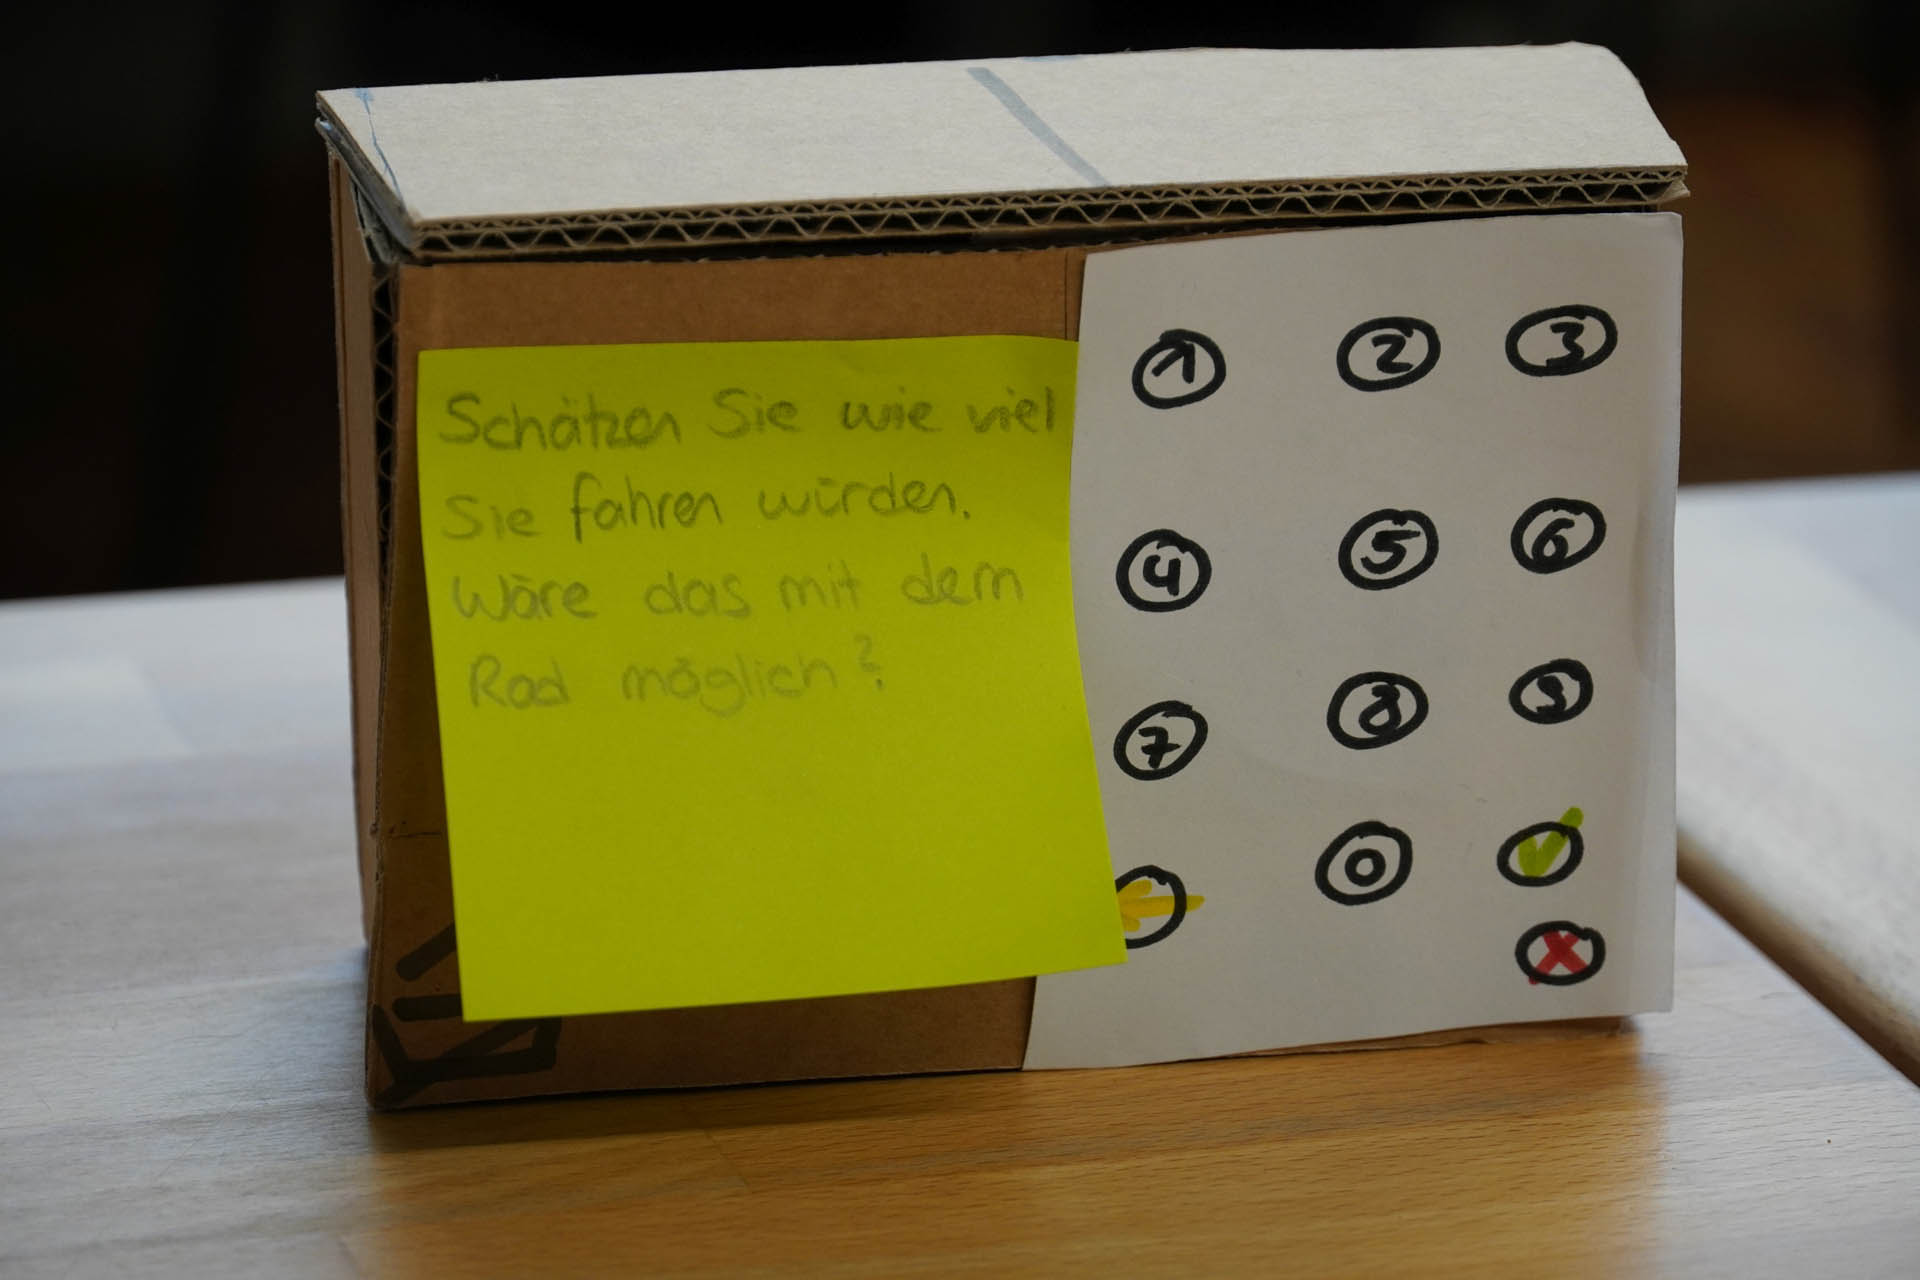 Schätzen Sie wie viel
Sie fahren würden.
Wäre das mit dem
Rad möglich?
1 2 3
4 5 6
7 8 9
0